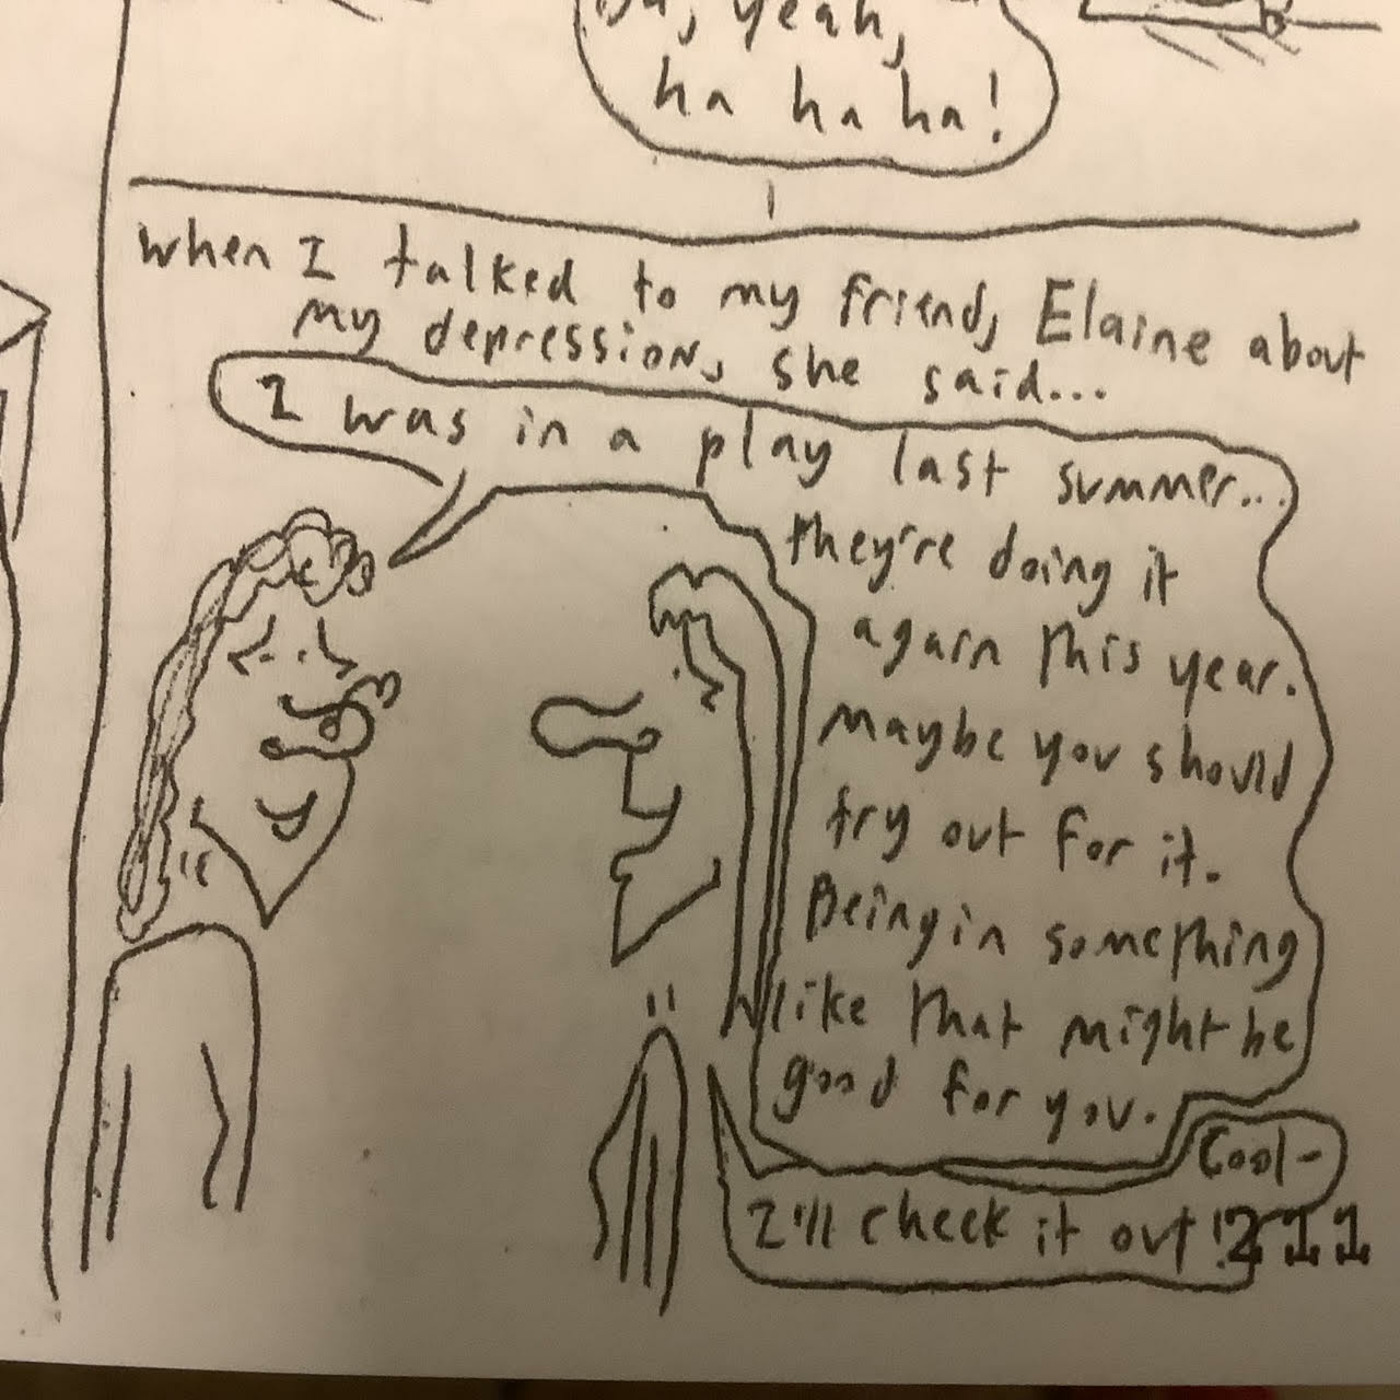 yeah,
ha ha ha!
when I talked to my friend, Elaine about
my depression, she said...
I was in a play last summer...
they're doing it
again this year.
Maybe you should
try out for it.
Being in something
like that might be
good for you.
Cool-
I'll check it out!
211